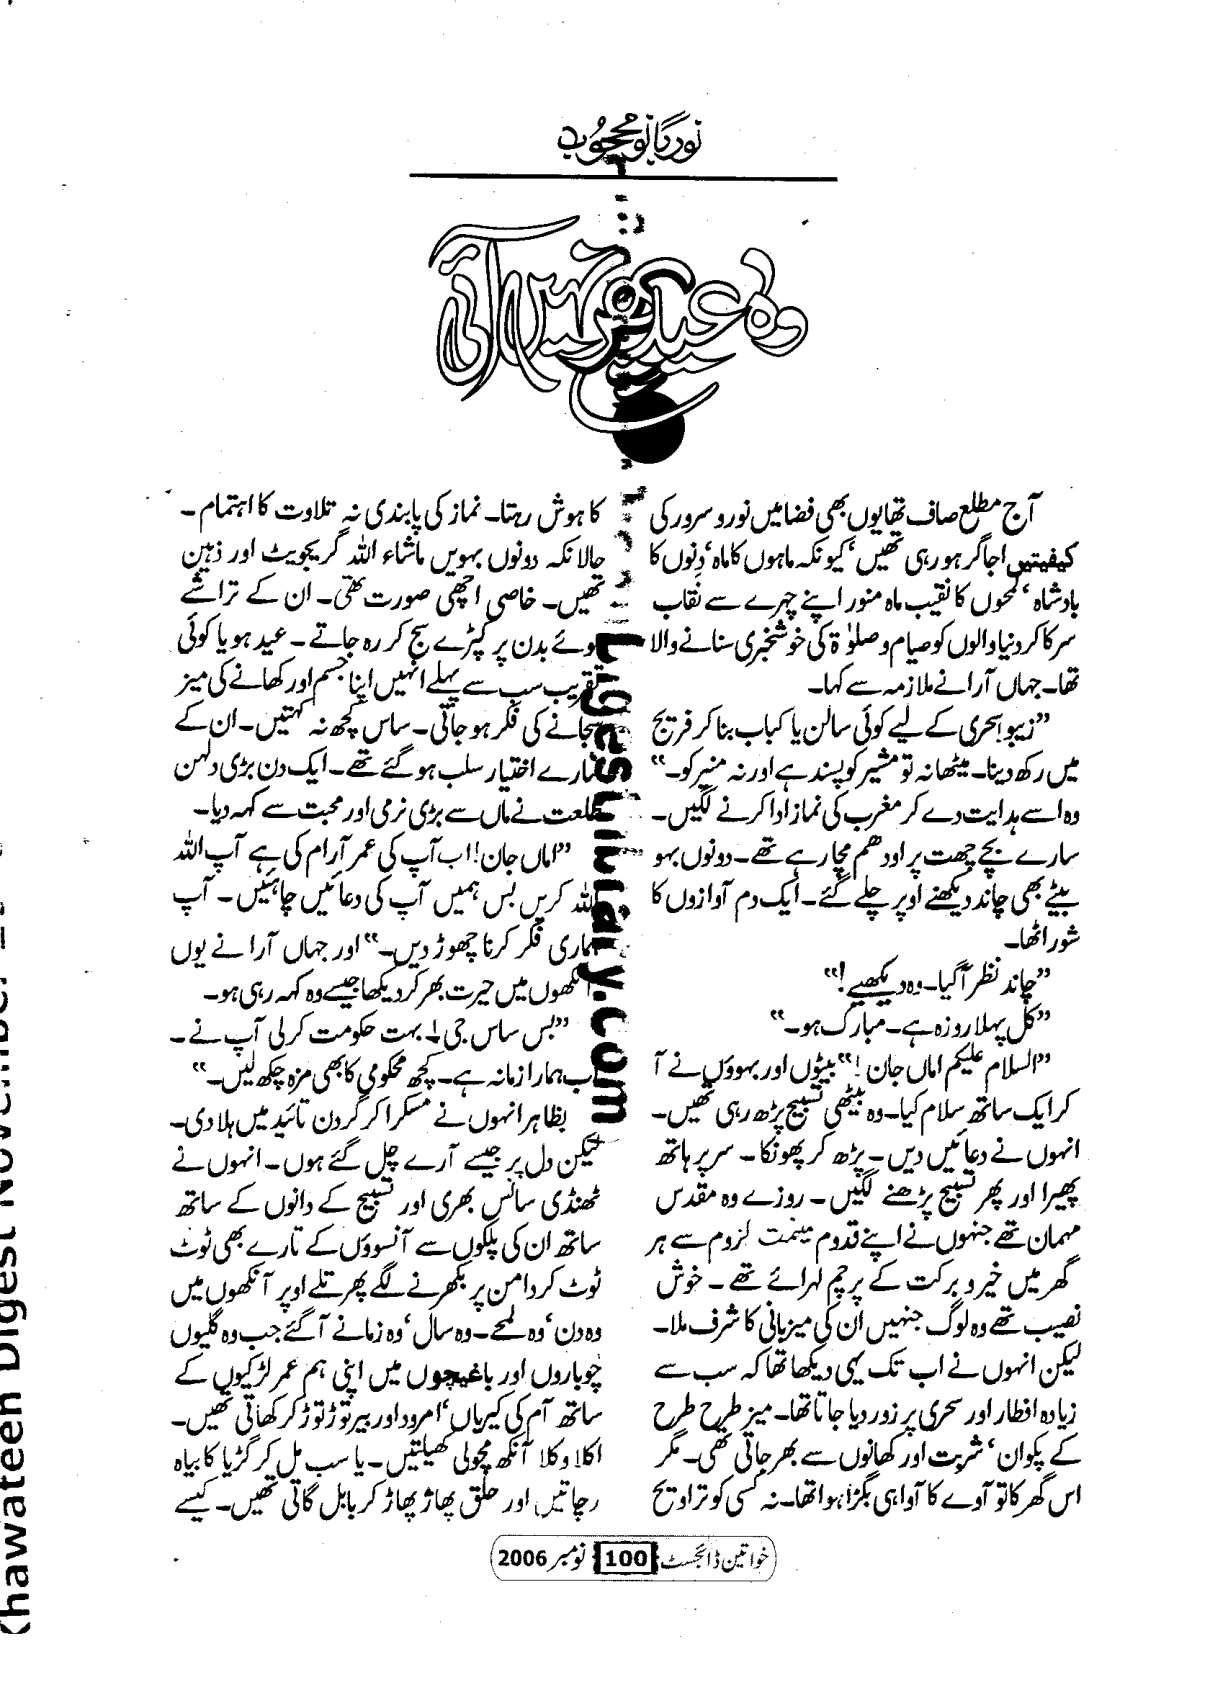 نور بانو محجوب
وہ عید پھر نہیں آئی
آج مطلع صاف تھا یوں بھی فضا میں نور و سرور کی
کیفیتیں اجاگر ہو رہی تھیں ‘ کیونکہ ماہوں کا ماہ ‘ دنوں کا
بادشاہ ‘ لمحوں کا نقیب ماہ منور اپنے چہرے سے نقاب
سرکا کر دنیا والوں کو صیام و صلوٰۃ کی خوشخبری سنانے والا
تھا۔ جہاں آرا نے ملازمہ سے کہا۔
”زیبو! سحری کے لیے کوئی سالن یا کباب بنا کر فریج
میں رکھ دینا۔ میٹھا نہ تو مشیر کو پسند ہے اور نہ منیر کو۔“
وہ اسے ہدایت دے کر مغرب کی نماز ادا کرنے لگیں۔
سارے بچے چھت پر اودھم مچا رہے تھے۔ دونوں بہو
بیٹے بھی چاند دیکھنے اوپر چلے گئے۔ ایک دم آوازوں کا
شور اٹھا۔
”چاند نظر آگیا۔ وہ دیکھیے!“
”کل پہلا روزہ ہے۔ مبارک ہو۔“
”السلام علیکم اماں جان!“ بیٹوں اور بہوؤں نے آ
کر ایک ساتھ سلام کیا۔ وہ بیٹھی تسبیح پڑھ رہی تھیں۔
انہوں نے دعائیں دیں۔ پڑھ کر پھونکا۔ سر پر ہاتھ
پھیرا اور پھر تسبیح پڑھنے لگیں۔ روزے وہ مقدس
مہمان تھے جنہوں نے اپنے قدوم میمنت لزوم سے ہر
گھر میں خیر و برکت کے پرچم لہرائے تھے۔ خوش
نصیب تھے وہ لوگ جنہیں ان کی میزبانی کا شرف ملا۔
لیکن انہوں نے اب تک یہی دیکھا تھا کہ سب سے
زیادہ افطار اور سحری پر زور دیا جاتا تھا۔ میز طرح طرح
کے پکوان ‘ شربت اور کھانوں سے بھر جاتی تھی۔ مگر
اس گھر کا تو آوے کا آوا ہی بگڑا ہوا تھا۔ نہ کسی کو تراویح
کا ہوش رہتا۔ نماز کی پابندی نہ تلاوت کا اہتمام۔
حالانکہ دونوں بہویں ماشاء اللہ گریجویٹ اور ذہین
تھیں۔ خاصی اچھی صورت تھی۔ ان کے تراشے
ہوئے بدن پر کپڑے سج کر رہ جاتے۔ عید ہو یا کوئی
تقریب سب سے پہلے انہیں اپنا جسم اور کھانے کی میز
سجانے کی فکر ہو جاتی۔ ساس کچھ نہ کہتیں۔ ان کے
سارے اختیار سلب ہو گئے تھے۔ ایک دن بڑی دلہن
طلعت نے ماں سے بڑی نرمی اور محبت سے کہہ دیا۔
”اماں جان! اب آپ کی عمر آرام کی ہے آپ اللہ
اللہ کریں بس ہمیں آپ کی دعائیں چاہئیں۔ آپ
ہماری فکر کرنا چھوڑ دیں۔“ اور جہاں آرا نے یوں
آنکھوں میں حیرت بھر کر دیکھا جیسے وہ کہہ رہی ہو۔
”بس ساس جی! بہت حکومت کر لی آپ نے۔
اب ہمارا زمانہ ہے۔ کچھ محکومی کا بھی مزہ چکھ لیں۔“
بظاہر انہوں نے مسکرا کر گردن تائید میں ہلا دی۔
لیکن دل پر جیسے آرے چل گئے ہوں۔ انہوں نے
ٹھنڈی سانس بھری اور تسبیح کے دانوں کے ساتھ
ساتھ ان کی پلکوں سے آنسوؤں کے تارے بھی ٹوٹ
ٹوٹ کر دامن پر بکھرنے لگے پھر تلے اوپر آنکھوں میں
وہ دن ‘ وہ لمحے۔ وہ سال ‘ وہ زمانے آگئے جب وہ گلیوں
چوباروں اور باغیچوں میں اپنی ہم عمر لڑکیوں کے
ساتھ آم کی کیریاں ‘ امرود اور بیر توڑ توڑ کر کھاتی تھیں۔
اکلا وکلا آنکھ مچولی کھیلتیں۔ یا سب مل کر گڑیا کا بیاہ
رچاتیں اور حلق پھاڑ پھاڑ کر بابل گاتی تھیں۔ کیسے
خواتین ڈائجسٹ 100 نومبر 2006
Khawateen Digest November